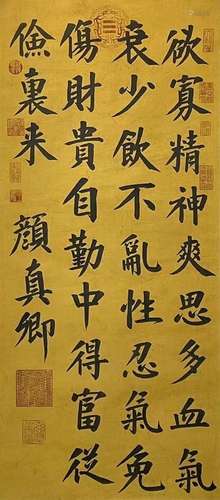 欲寡精神爽思多血氣
衰少飲不亂性忍氣免
傷財貴自勤中得富從
儉裏来
顔真卿